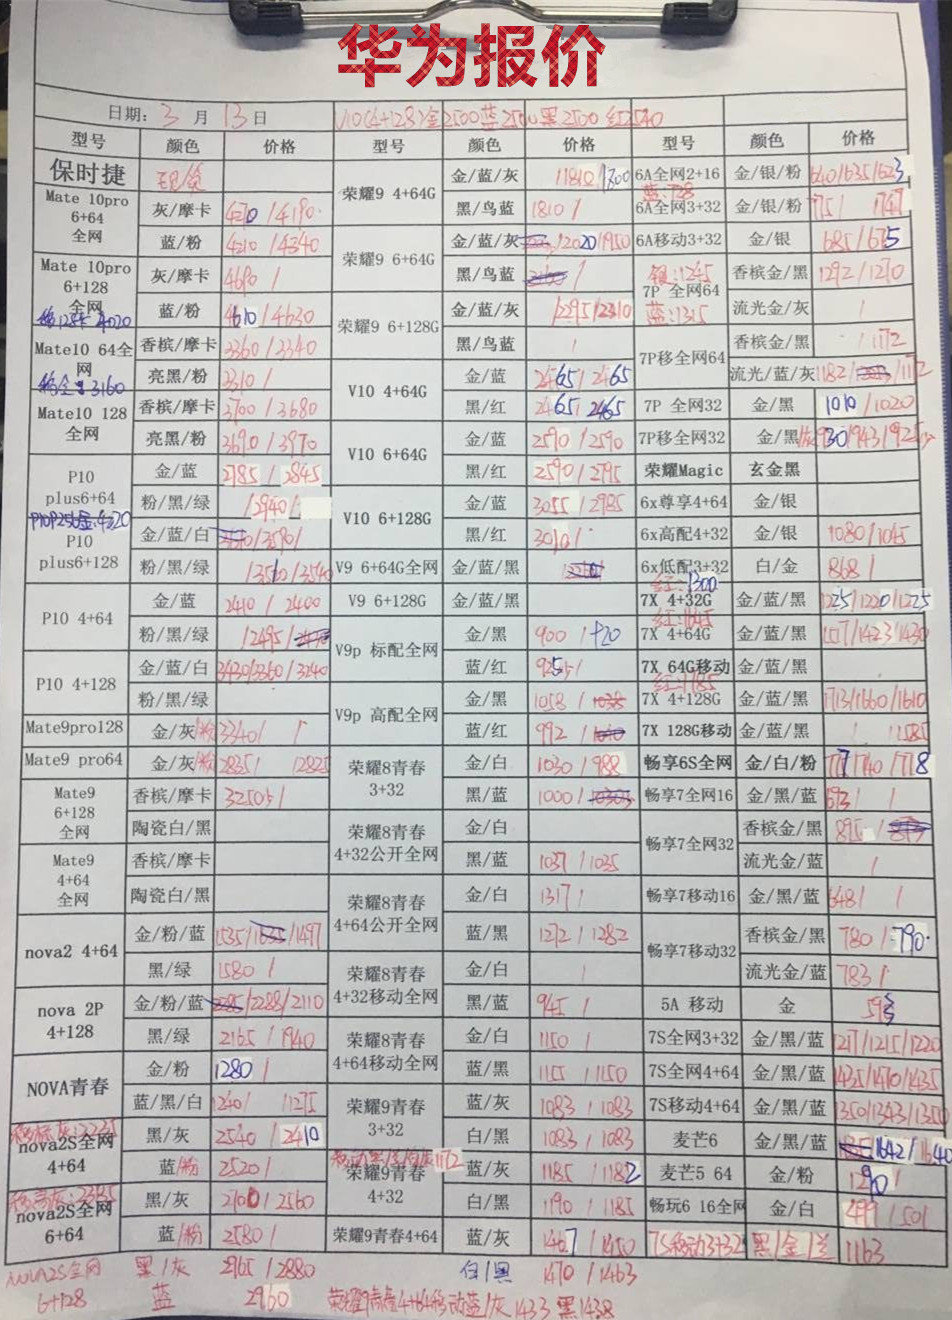 华为报价
日期: 3 月 13 日 V10(4+128)金2500蓝2500黑2500红2540
型号 颜色 价格 型号 颜色 价格 型号 颜色 价格
保时捷 现货
Mate 10pro 6+64 全网 灰/摩卡 4270/4190
蓝/粉 4210/4340
Mate 10pro 6+128 全网 灰/摩卡 4690/
蓝/粉 4610/4630
Mate10 64全网 香槟/摩卡 3360/3340
亮黑/粉 3310/
Mate10 128 全网 香槟/摩卡 3700/3680
亮黑/粉 3690/3970
P10 plus6+64 金/蓝 2785/2845
粉/黑/绿 /2940/
P10 plus6+128 金/蓝/白
粉/黑/绿 /3560/3540
P10 4+64 金/蓝 2410/2400
粉/黑/绿 /2495/
P10 4+128 金/蓝/白 3430/3360/3240
粉/黑/绿
Mate9pro128 金/灰/粉 3340/ /
Mate9 pro64 金/灰/粉 2825/ /2825
Mate9 6+128 全网 香槟/摩卡 3250/
陶瓷白/黑
Mate9 4+64 全网 香槟/摩卡
陶瓷白/黑
nova2 4+64 金/粉/蓝 1535/ /1497
黑/绿 1580/
nova 2P 4+128 金/粉/蓝 /2288/2110
黑/绿 2165/1940
NOVA青春 金/粉 1280/
蓝/黑/白 1240/ /1275
nova2S全网 4+64 黑/灰 2540/2410
蓝/粉 2520/
nova2S全网 6+64 黑/灰 2760/2560
蓝/粉 2580/
NOVA2S全网 6+128 黑/灰 2965/2880
蓝 2960
荣耀9 4+64G 金/蓝/灰 1810/1800
黑/鸟蓝 1810/
荣耀9 6+64G 金/蓝/灰 /2020/1950
黑/鸟蓝
荣耀9 6+128G 金/蓝/灰 2295/2310
黑/鸟蓝 /
V10 4+64G 金/蓝 2465/2465
黑/红 2465/2465
V10 6+64G 金/蓝 2590/2590
黑/红 2590/2795
V10 6+128G 金/蓝 3055/2985
黑/红 3010/
V9 6+64G全网 金/蓝/黑
V9 6+128G 金/蓝/黑
V9p 标配全网 金/黑 900/920
蓝/红 925/
V9p 高配全网 金/黑 1058/
蓝/红 992/
荣耀8青春 3+32 金/白 1030/988
黑/蓝 1000/
荣耀8青春 4+32公开全网 金/白
黑/蓝 1037/1035
荣耀8青春 4+64公开全网 金/白 1317/
蓝/黑 1272/1282
荣耀8青春 4+32移动全网 金/白 /
黑/蓝 945/
荣耀8青春 4+64移动全网 金/白 1150/
蓝/黑 1155/1150
荣耀9青春 3+32 蓝/灰 1083/1083
白/黑 1083/1083
荣耀9青春 4+32 蓝/灰 1185/1182
白/黑 1190/1185
荣耀9青春4+64 蓝/灰 1467/1450
白/黑 1470/1463
荣耀9青春4+64移动蓝/灰1433黑1438
6A全网2+16 金/银/粉 640/635/623
蓝:728
6A全网3+32 金/银/粉 751/ /747
6A移动3+32 金/银 685/675
银:1245
7P 全网64 香槟金/黑 1292/1270
蓝:1315
流光金/灰 /
7P移全网64 香槟金/黑 /1172
流光/蓝/灰 1182/ /1172
7P 全网32 金/黑 1010/1020
7P移全网32 金/黑 930/943/925
荣耀Magic 玄金黑
6x尊享4+64 金/银
6x高配4+32 金/银 1080/1045
6x低配3+32 白/金 868/
红:1300
7X 4+32G 金/蓝/黑 1225/1220/1225
7X 4+64G 金/蓝/黑 /1423/1430
7X 64G移动 金/蓝/黑
红:1785
7X 4+128G 金/蓝/黑 1713/1660/1610
7X 128G移动 金/蓝/黑 / /1585
畅享6S全网 金/白/粉 717/740/718
畅享7全网16 金/黑/蓝 693/ /
畅享7全网32 香槟金/黑 895/
流光金/蓝 /
畅享7移动16 金/黑/蓝 648/ /
畅享7移动32 香槟金/黑 780/790
流光金/蓝 783/
5A 移动 金 593
7S全网3+32 金/黑/蓝 1217/1215/1220
7S全网4+64 金/黑/蓝 1435/1470/1435
7S移动4+64 金/黑/蓝 1350/1343/1350
麦芒6 金/黑/蓝 /1642/1640
麦芒5 64 金/粉 1290/
畅玩6 16全网 金/白 499/501
7S移动3+32 黑/金/兰 1163